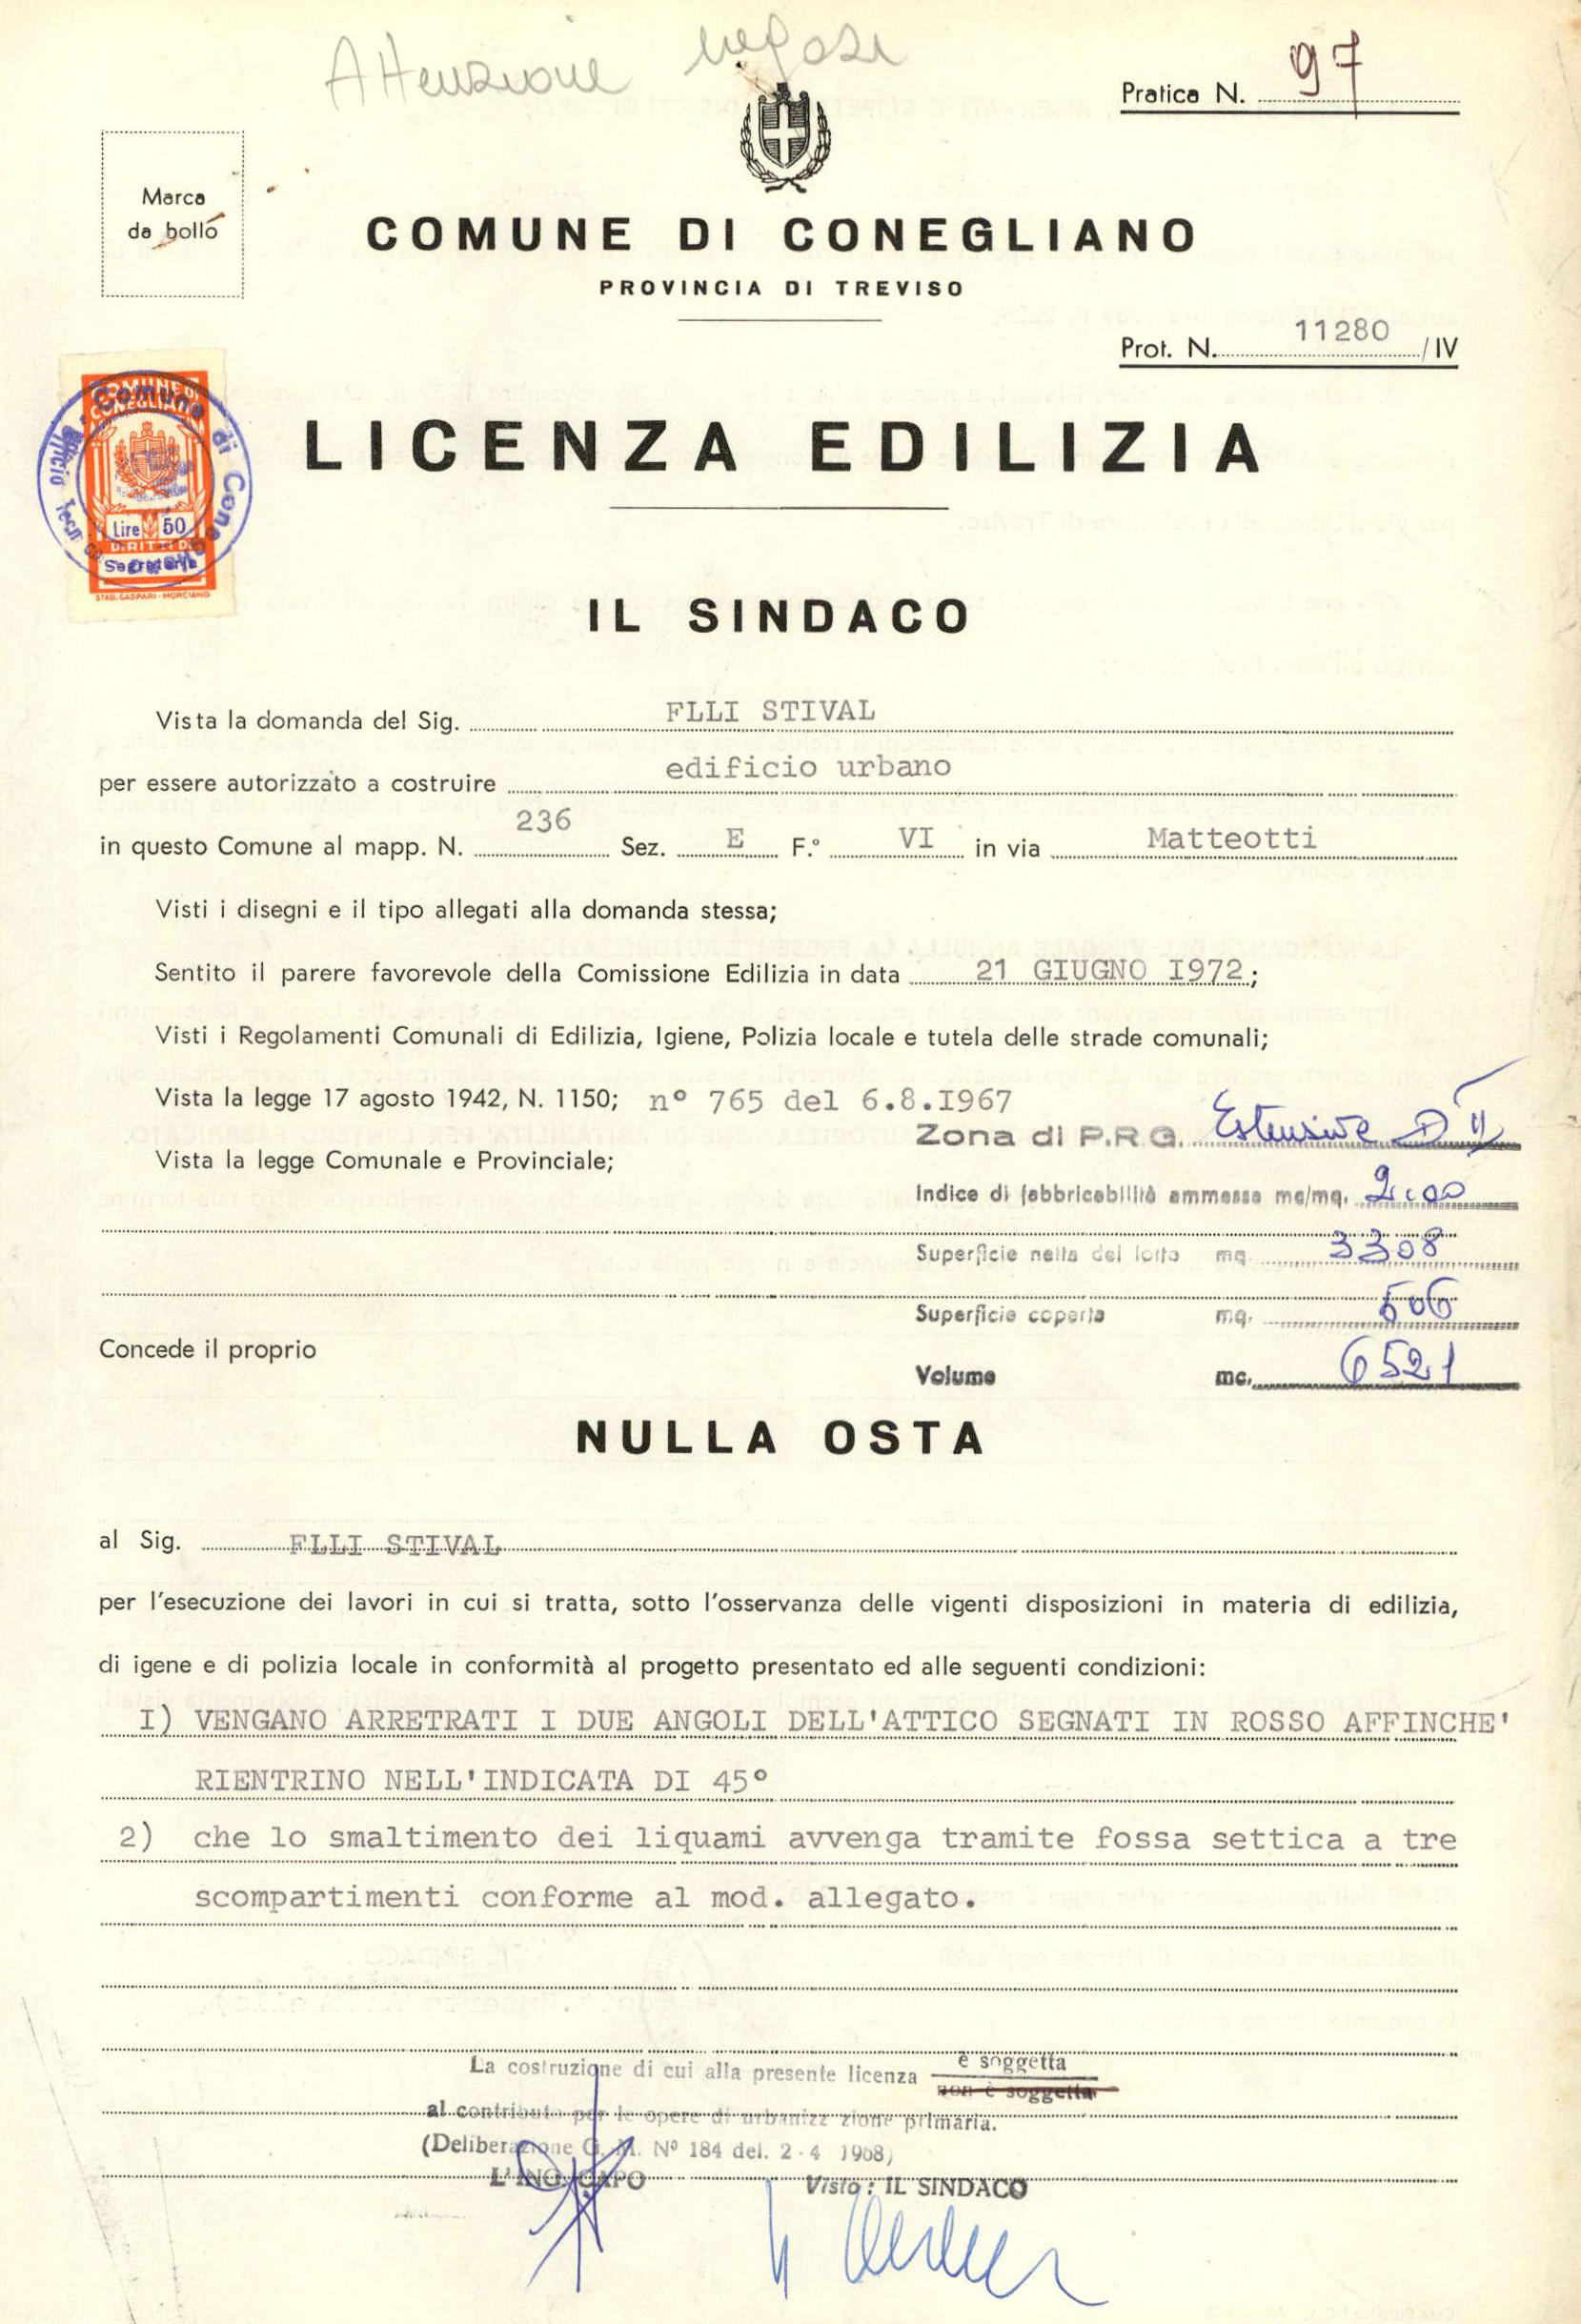 Attenzione negozi
Pratica N. 97
Marca
da bollo
COMUNE DI CONEGLIANO
PROVINCIA DI TREVISO
Prot. N. 11280 /IV
COMUNE DI
CONEGLIANO
Comune di Conegliano
Ufficio Tecnico
Lire 50
DIRITTI DI
Segreteria
STAB. GASPARI - MORCIANO
LICENZA EDILIZIA
IL SINDACO
Vista la domanda del Sig. FLLI STIVAL
per essere autorizzato a costruire edificio urbano
in questo Comune al mapp. N. 236 Sez. E F.° VI in via Matteotti
Visti i disegni e il tipo allegati alla domanda stessa;
Sentito il parere favorevole della Comissione Edilizia in data 21 GIUGNO I972;
Visti i Regolamenti Comunali di Edilizia, Igiene, Polizia locale e tutela delle strade comunali;
Vista la legge 17 agosto 1942, N. 1150; n° 765 del 6.8.I967
Zona di P.R.G. Estensive D II
Vista la legge Comunale e Provinciale;
Indice di fabbricabilità ammesso mc/mq. 2.00
Superficie netta del lotto mq. 3308
Superficie coperta mq. 506
Concede il proprio
Volume mc. 6521
NULLA OSTA
al Sig. FLLI STIVAL
per l'esecuzione dei lavori in cui si tratta, sotto l'osservanza delle vigenti disposizioni in materia di edilizia,
di igene e di polizia locale in conformità al progetto presentato ed alle seguenti condizioni:
I) VENGANO ARRETRATI I DUE ANGOLI DELL'ATTICO SEGNATI IN ROSSO AFFINCHE'
RIENTRINO NELL'INDICATA DI 45°
2) che lo smaltimento dei liquami avvenga tramite fossa settica a tre
scompartimenti conforme al mod. allegato.
La costruzione di cui alla presente licenza è soggetta
non è soggetta
al contributo per le opere di urbanizzazione primaria.
(Deliberazione G. M. N° 184 del. 2-4 1968)
L'ING. CAPO Visto: IL SINDACO